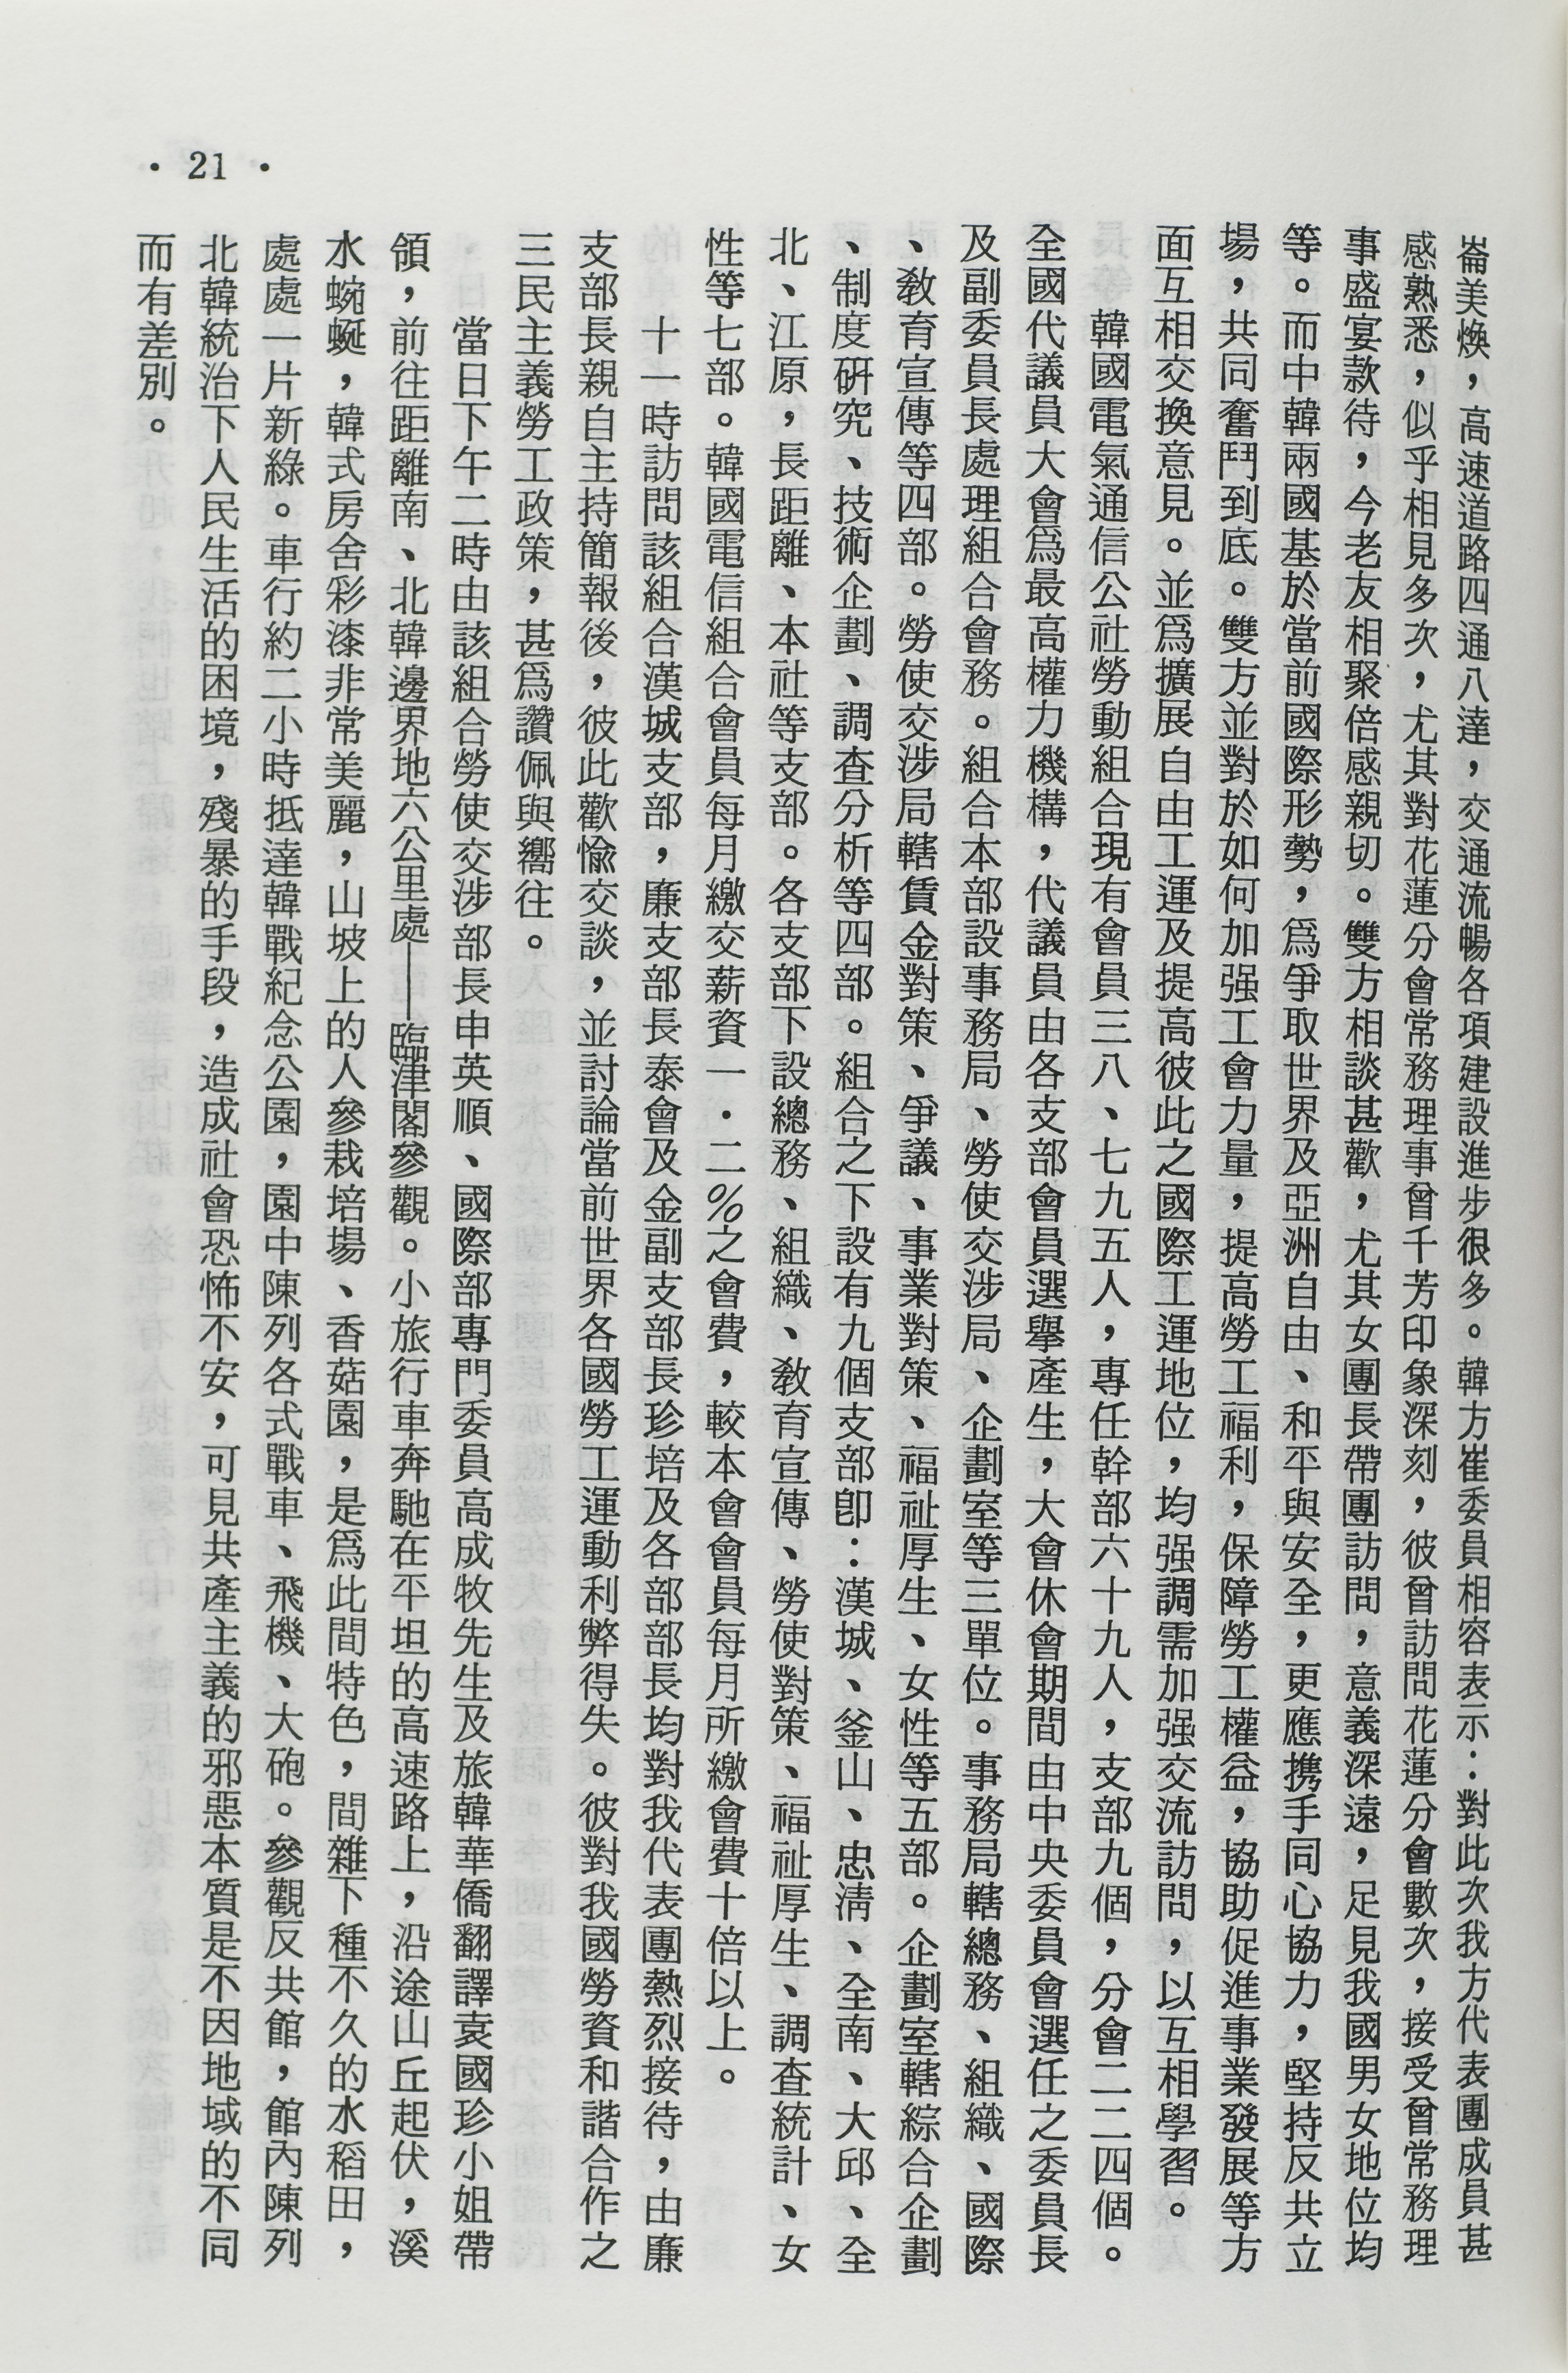 崙美煥，高速道路四通八達，交通流暢各項建設進步很多。韓方崔委員相容表示：對此次我方代表團成員甚
感熟悉，似乎相見多次，尤其對花蓮分會常務理事曾千芳印象深刻，彼曾訪問花蓮分會數次，接受曾常務理
事盛宴款待，今老友相聚倍感親切。雙方相談甚歡，尤其女團長帶團訪問，意義深遠，足見我國男女地位均
等。而中韓兩國基於當前國際形勢，爲爭取世界及亞洲自由、和平與安全，更應携手同心協力，堅持反共立
場，共同奮鬥到底。雙方並對於如何加强工會力量，提高勞工福利，保障勞工權益，協助促進事業發展等方
面互相交換意見。並爲擴展自由工運及提高彼此之國際工運地位，均强調需加强交流訪問，以互相學習。
韓國電氣通信公社勞動組合現有會員三八、七九五人，專任幹部六十九人，支部九個，分會二二四個。
全國代議員大會爲最高權力機構，代議員由各支部會員選舉產生，大會休會期間由中央委員會選任之委員長
及副委員長處理組合會務。組合本部設事務局、勞使交涉局、企劃室等三單位。事務局轄總務、組織、國際
、教育宣傳等四部。勞使交涉局轄賃金對策、爭議、事業對策、福祉厚生、女性等五部。企劃室轄綜合企劃
、制度研究、技術企劃、調查分析等四部。組合之下設有九個支部卽：漢城、釜山、忠淸、全南、大邱、全
北、江原，長距離、本社等支部。各支部下設總務、組織、教育宣傳、勞使對策、福祉厚生、調查統計、女
性等七部。韓國電信組合會員每月繳交薪資一．二％之會費，較本會會員每月所繳會費十倍以上。
十一時訪問該組合漢城支部，廉支部長泰會及金副支部長珍培及各部部長均對我代表團熱烈接待，由廉
支部長親自主持簡報後，彼此歡愉交談，並討論當前世界各國勞工運動利弊得失。彼對我國勞資和諧合作之
三民主義勞工政策，甚爲讚佩與嚮往。
當日下午二時由該組合勞使交涉部長申英順、國際部專門委員高成牧先生及旅韓華僑翻譯袁國珍小姐帶
領，前往距離南、北韓邊界地六公里處——臨津閣參觀。小旅行車奔馳在平坦的高速路上，沿途山丘起伏，溪
水蜿蜒，韓式房舍彩漆非常美麗，山坡上的人參栽培場、香菇園，是爲此間特色，間雜下種不久的水稻田，
處處一片新綠。車行約二小時抵達韓戰紀念公園，園中陳列各式戰車、飛機、大砲。參觀反共館，館內陳列
北韓統治下人民生活的困境，殘暴的手段，造成社會恐怖不安，可見共產主義的邪惡本質是不因地域的不同
而有差別。
· 21 ·